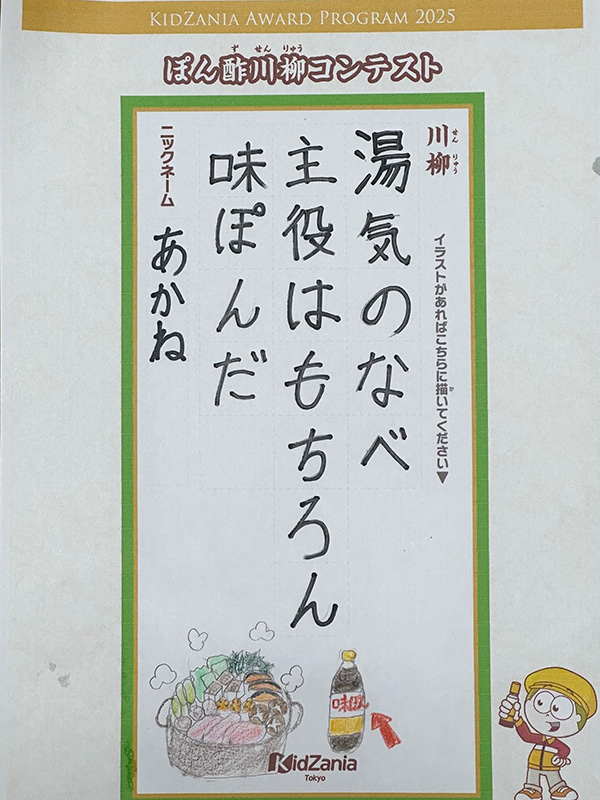 KIDZANIA AWARD PROGRAM 2025
ぽん酢川柳コンテスト
ず せん りゅう
川柳
せん りゅう
イラストがあればこちらに描いてください▼
か
湯気のなべ
主役はもちろん
味ぽんだ
ニックネーム
あかね
味ぽん
KidZania
Tokyo